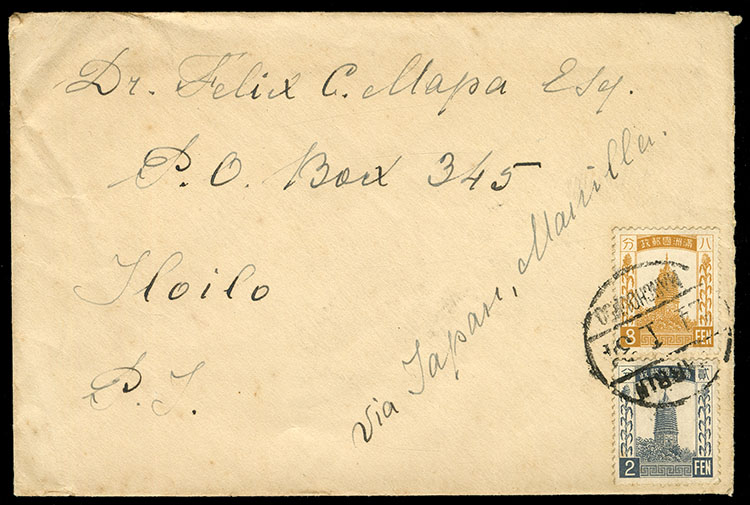 Dr. Felix C. Mapa Esq.
P.O. Box 345
Iloilo
P.I.
via Japan, Manilla.
滿洲國郵政
八分
8 FEN
MANCHOUKUO
I
2 FEN